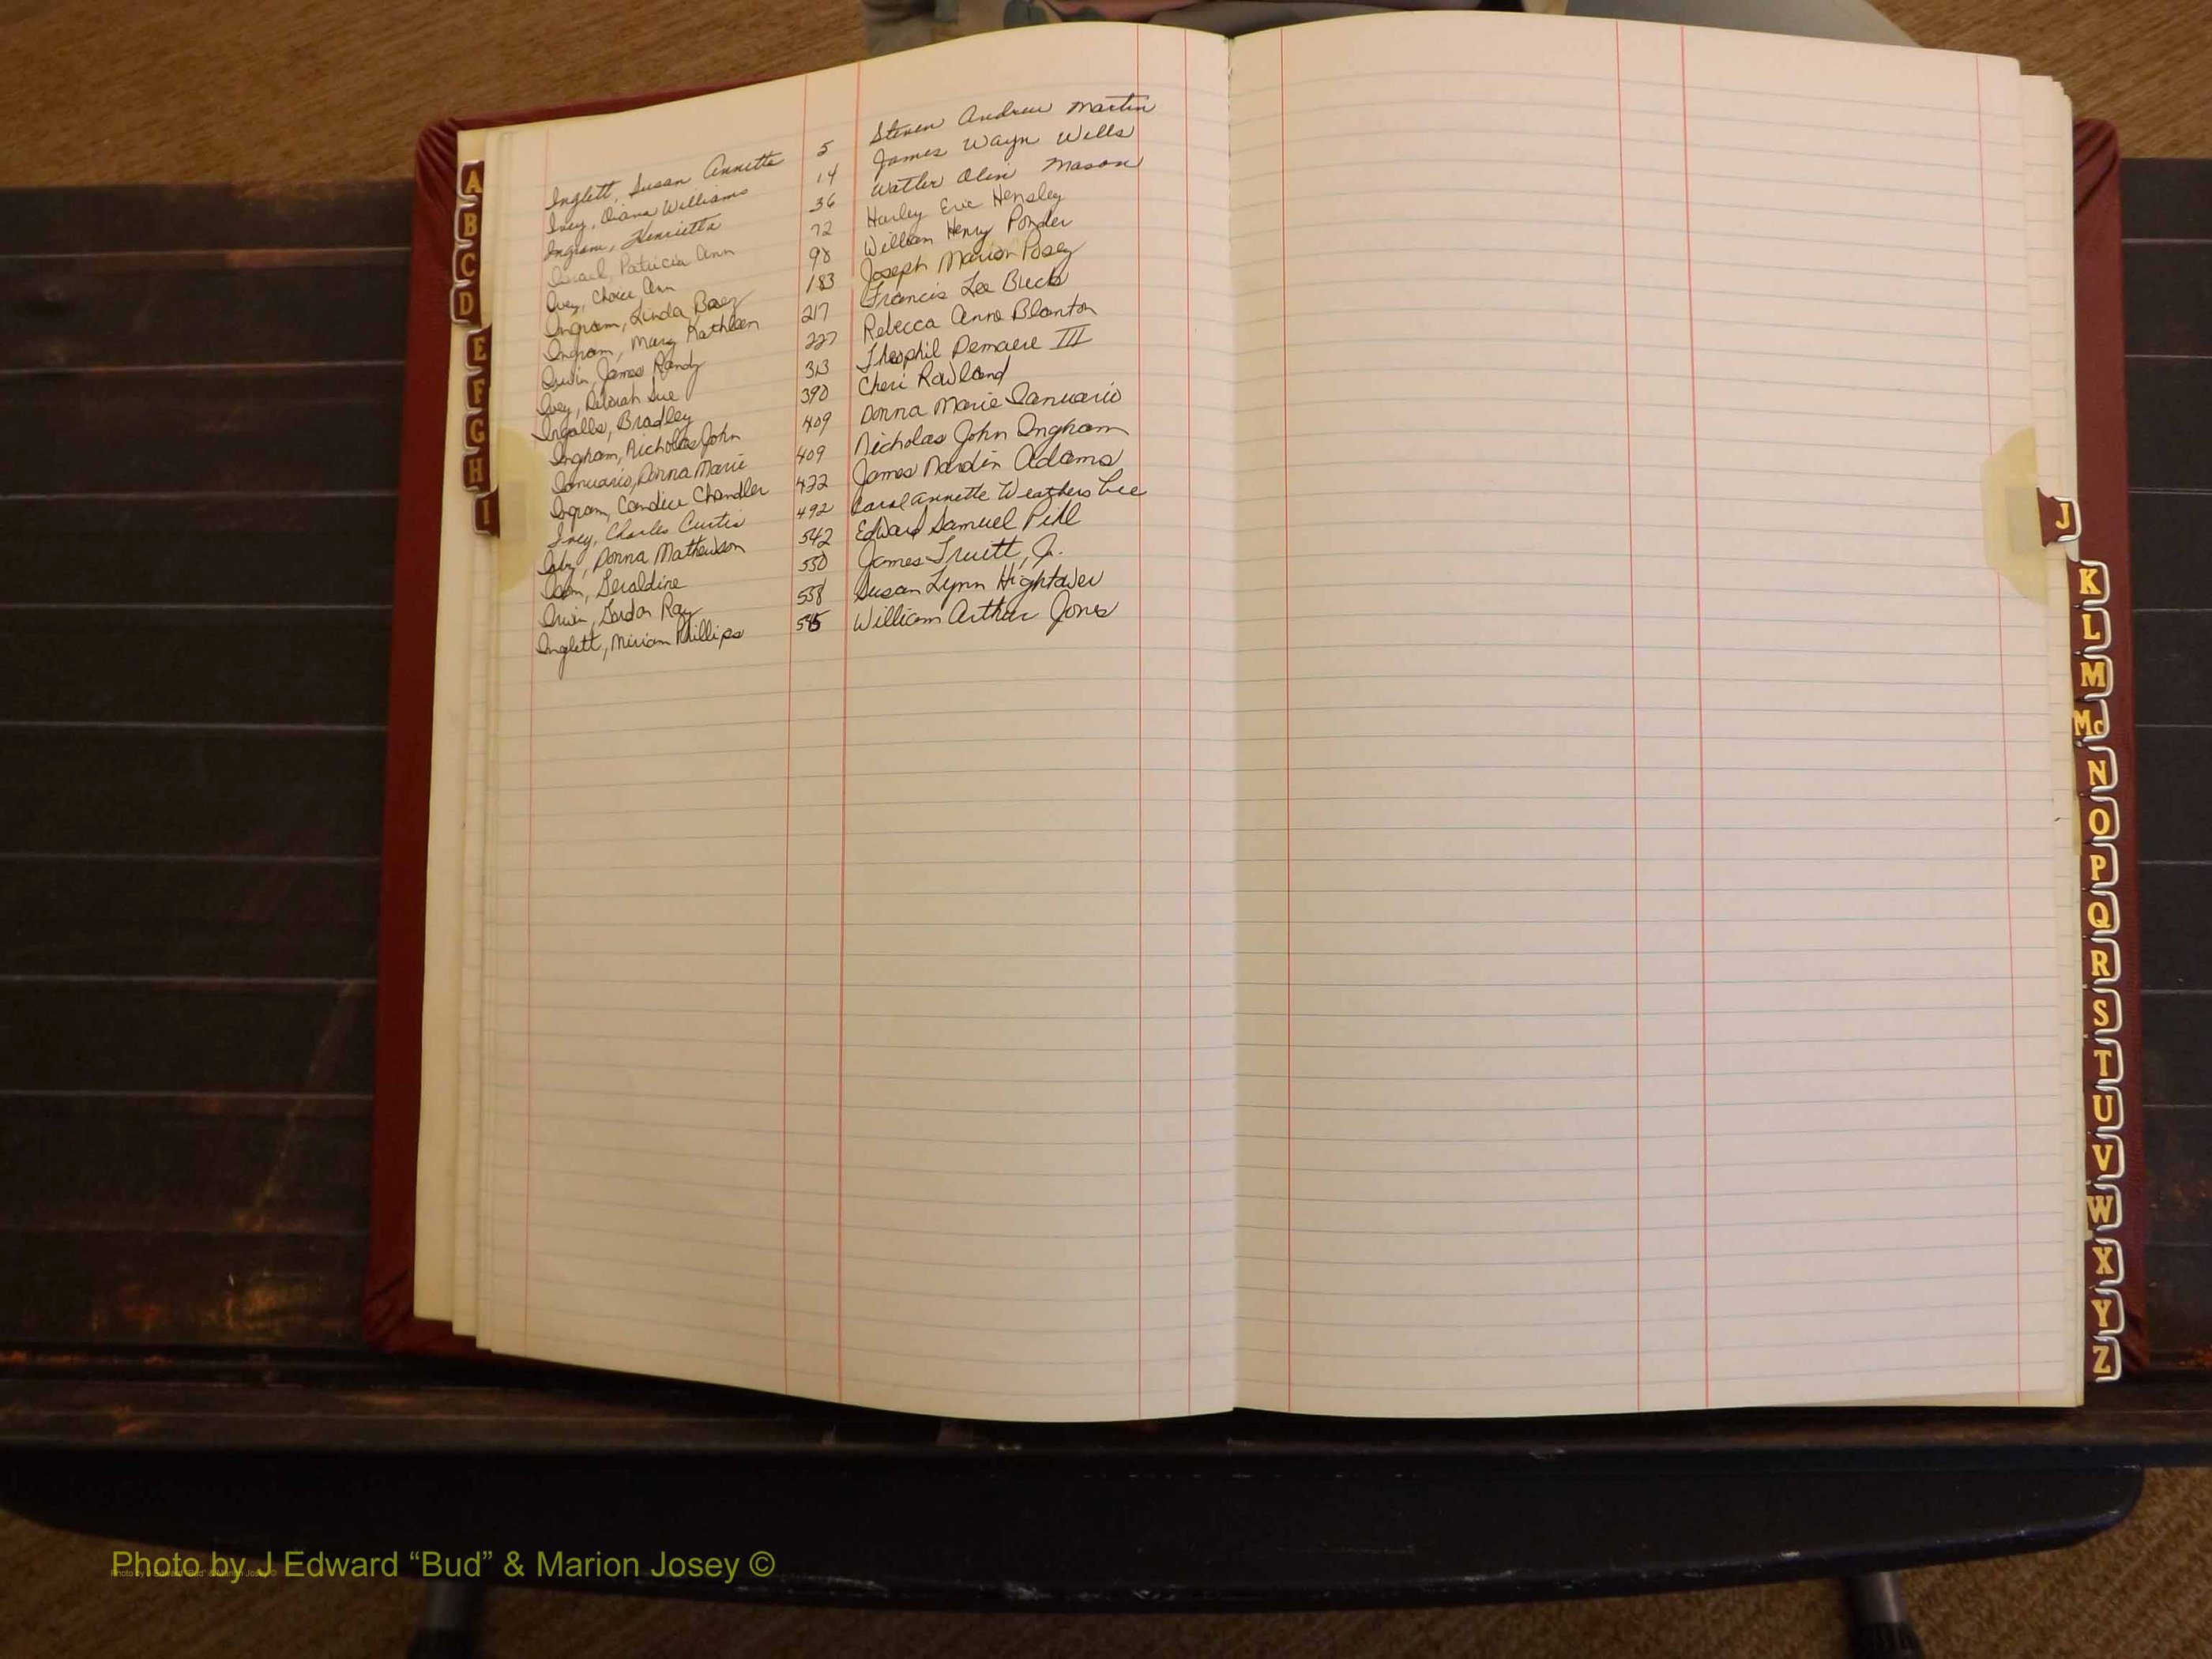 Inglett, Susan Annette 5 Steven Andrew Martin
Ivey, Diana Williams 14 James Wayn Wells
Ingram, Henrietta 36 Watler Olin Mason
Israel, Patricia Ann 72 Harley Eric Hensley
Ivey, Choice Ann 98 William Henry Ponder
Ingram, Linda Baez 183 Joseph Marion Posey
Ingram, Mary Kathleen 217 Francis Lee Buck
Irwin, James Randy 227 Rebecca Anne Blanton
Ivey, Deborah Sue 313 Theophil Demaere III
Ingalls, Bradley 390 Cheri Rowland
Ingham, Nicholas John 409 Donna Marie Ianuario
Ianuario, Donna Marie 409 Nicholas John Ingham
Ingram, Candice Chandler 422 James Nardin Adams
Ivey, Charles Curtis 492 Carol Annette Weathers Lee
Isby, Donna Mathewson 542 Edward Samuel Pill
Isom, Geraldine 550 James Truett, Jr.
Irwin, Gordon Ray 558 Susan Lynn Hightower
Inglett, Miriam Phillips 585 William Arthur Jones
A
B
C
D
E
F
G
H
I
J
K
L
M
Mc
N
O
P
Q
R
S
T
U
V
W
X
Y
Z
Photo by J Edward “Bud” & Marion Josey ©
Photo by J Edward “Bud” & Marion Josey ©